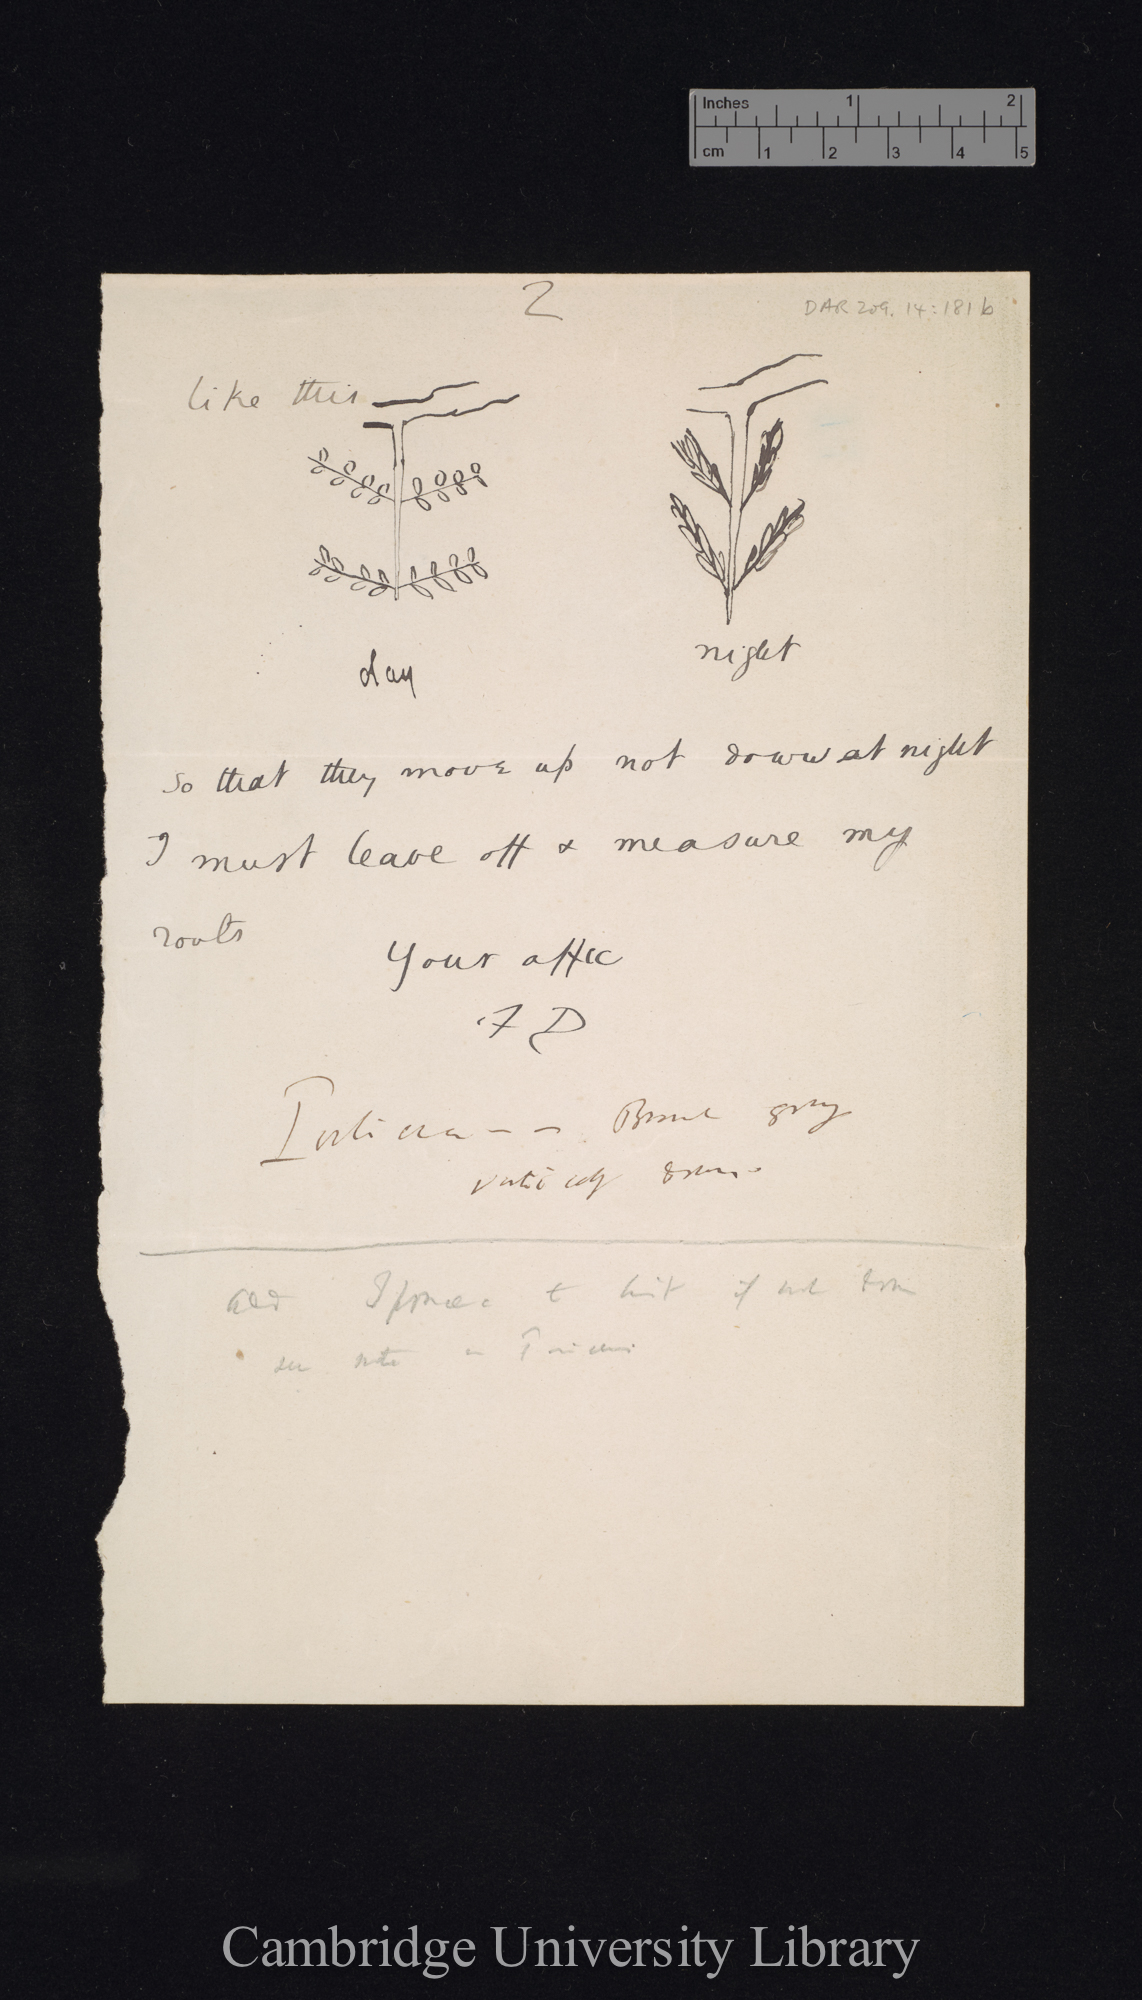 Inches 1 2
cm 1 2 3 4 5
2
DAR 209.14:181b
like this
day
night
so that they move up not down at night
I must leave off & measure my
roots
Your affec
F D
Branch
vertically down
add if not
see note on
Cambridge University Library